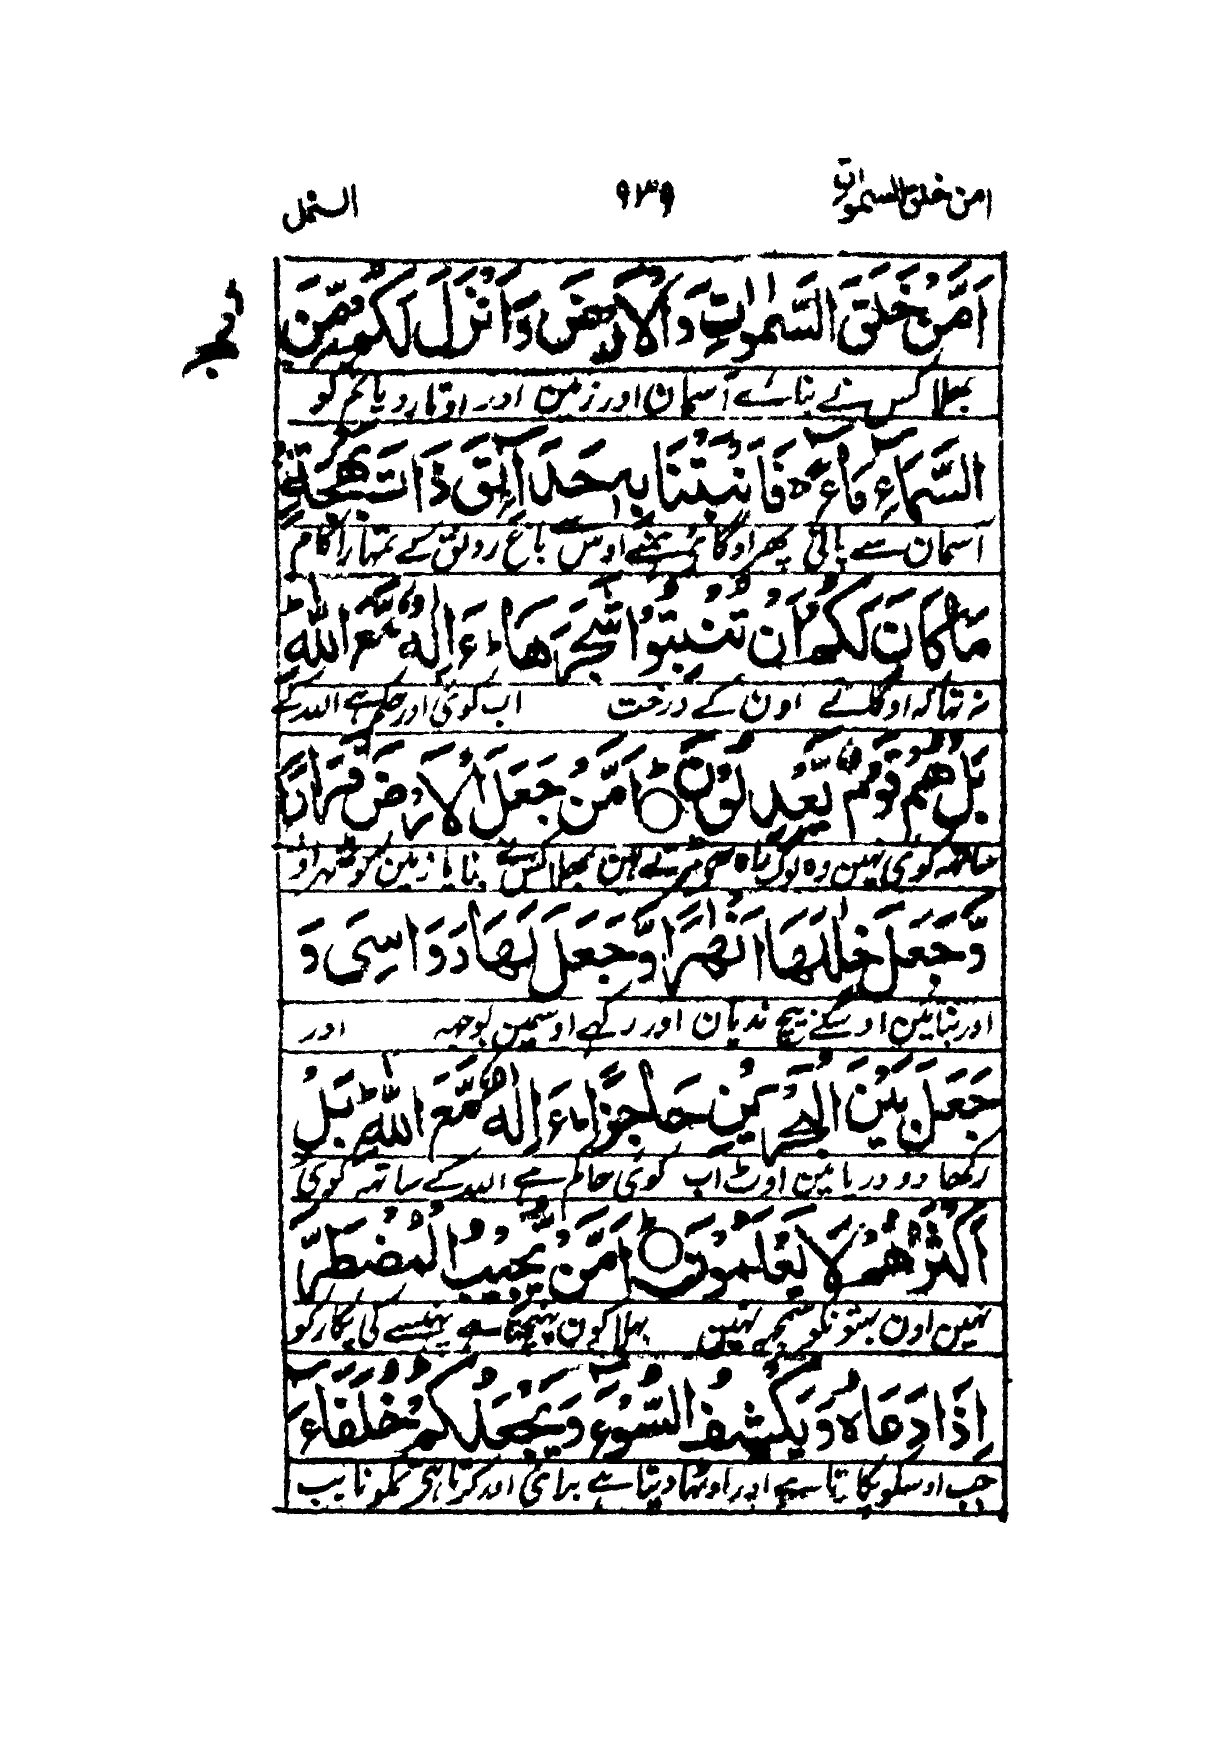 امن خلق السموات ٩٣٩ النمل
اَمَّنْ خَلَقَ السَّمٰوٰتِ وَالْاَرْضَ وَاَنْزَلَ لَكُمْ مِّنَ
بھلا کس نے بنائے آسمان اور زمین اور اوتار دیا تم کو
السَّمَآءِ مَآءً فَاَنْۢبَتْنَا بِهٖ حَدَآئِقَ ذَاتَ بَهْجَةٍ
آسمان سے پانی پھر اوگائے ہمنے اوس سے باغ رونق کے تمہارا کام
مَا كَانَ لَكُمْ اَنْ تُنْۢبِتُوْا شَجَرَهَا ؕ ءَاِلٰهٌ مَّعَ اللّٰهِ ؕ
نہ تہا کہ اوگاتے اون کے درخت اب کوئی اور حاکم ہے اللہ کے
بَلْ هُمْ قَوْمٌ يَّعْدِلُوْنَ ؕ اَمَّنْ جَعَلَ الْاَرْضَ قَرَارًا
ساتھہ کوئی نہین وہ لوگ راہ سے مڑتے ہین بھلا کس نے بنایا زمین کو ٹھہراؤ
وَّجَعَلَ خِلٰلَهَا اَنْهٰرًا وَّجَعَلَ لَهَا رَوَاسِىَ وَ
اور بنائین اوسکے بیچ ندیان اور رکھے اوسمین بوجہہ اور
جَعَلَ بَيْنَ الْبَحْرَيْنِ حَاجِزًا ؕ ءَاِلٰهٌ مَّعَ اللّٰهِ ؕ بَلْ
رکھا دو دریا مین اوٹ اب کوئی حاکم ہے اللہ کے ساتھہ کوئی
اَكْثَرُهُمْ لَا يَعْلَمُوْنَ ؕ اَمَّنْ يُّجِيْبُ الْمُضْطَرَّ
نہین اون بہتونکو سمجھہ نہین بھلا کون پہنچتا ہے پہنسے کی پکار کو
اِذَا دَعَاهُ وَيَكْشِفُ السُّوْٓءَ وَيَجْعَلُكُمْ خُلَفَآءَ
جب اوسکو پکارتا ہے اور اوٹھا دیتا ہے برائی اور کرتا ہی تمکو نایب